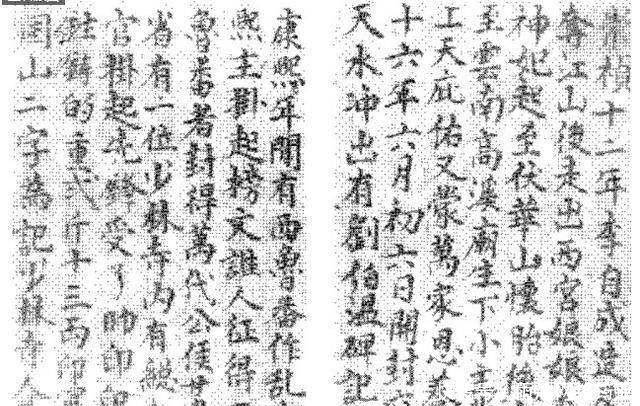 禎十二年李自成造
奪江山後走出西宮娘娘
神妃起至伏華山懷胎
主雲南高溪廟生下小主
工天庇佑又蒙萬家恩
十六年六月初六日開封
天水冲出有劉伯温碑記
康熙年間有西魯番作乱
熙主掛起榜文誰人征得
魯番者封得萬代公侯世
省有一位少林寺内有
官掛起先鋒受了帥印印
鑄的重弍斤十三两印
山二字為記少林寺